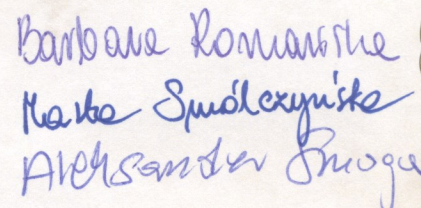 Barbara Romańska
Marta Smólczyńska
Aleksander Smoga